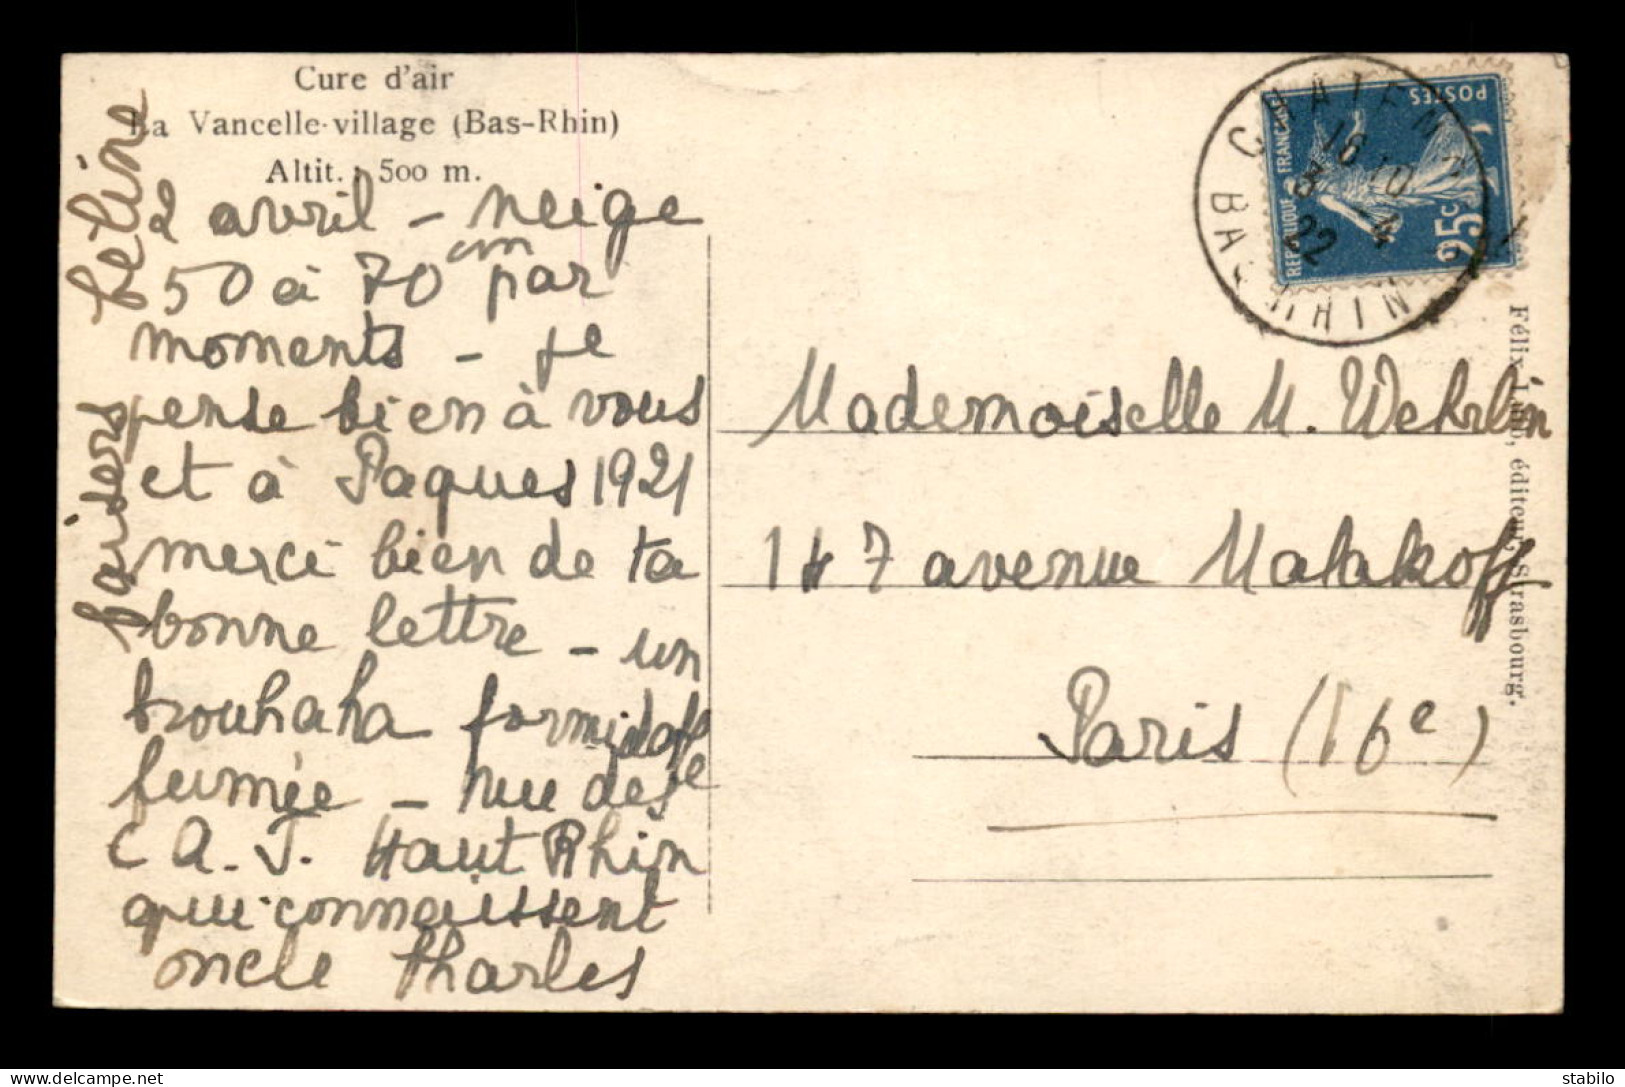 Cure d'air
La Vancelle-village (Bas-Rhin)
Altit. : 500 m.
2 avril - neige
50 à 70 cm par
moments - je
pense bien à vous
et à Paques 1921
merci bien de ta
bonne lettre - un
brouhaha formidable
fumée - rue des
C A. J. Haut Rhin
qui connaissent
oncle Charles
baisers
Feline
BAS RHIN
16 10
3 -4
22
REPUBLIQUE FRANCAISE
POSTES
25c
Mademoiselle M. Wehrlin
147 avenue Malakoff
Paris (16e)
Félix Luib, éditeur, Strasbourg.
stabilo